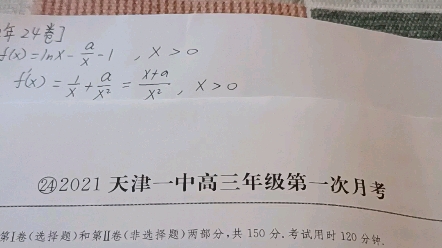 年24卷]
f(x)=lnx-\frac{a}{x}-1 , x>0
f'(x)=\frac{1}{x}+\frac{a}{x²}=\frac{x+a}{x²}, x>0
㉔2021 天津一中高三年级第一次月考
第Ⅰ卷(选择题)和第Ⅱ卷(非选择题)两部分,共 150 分.考试用时 120 分钟.